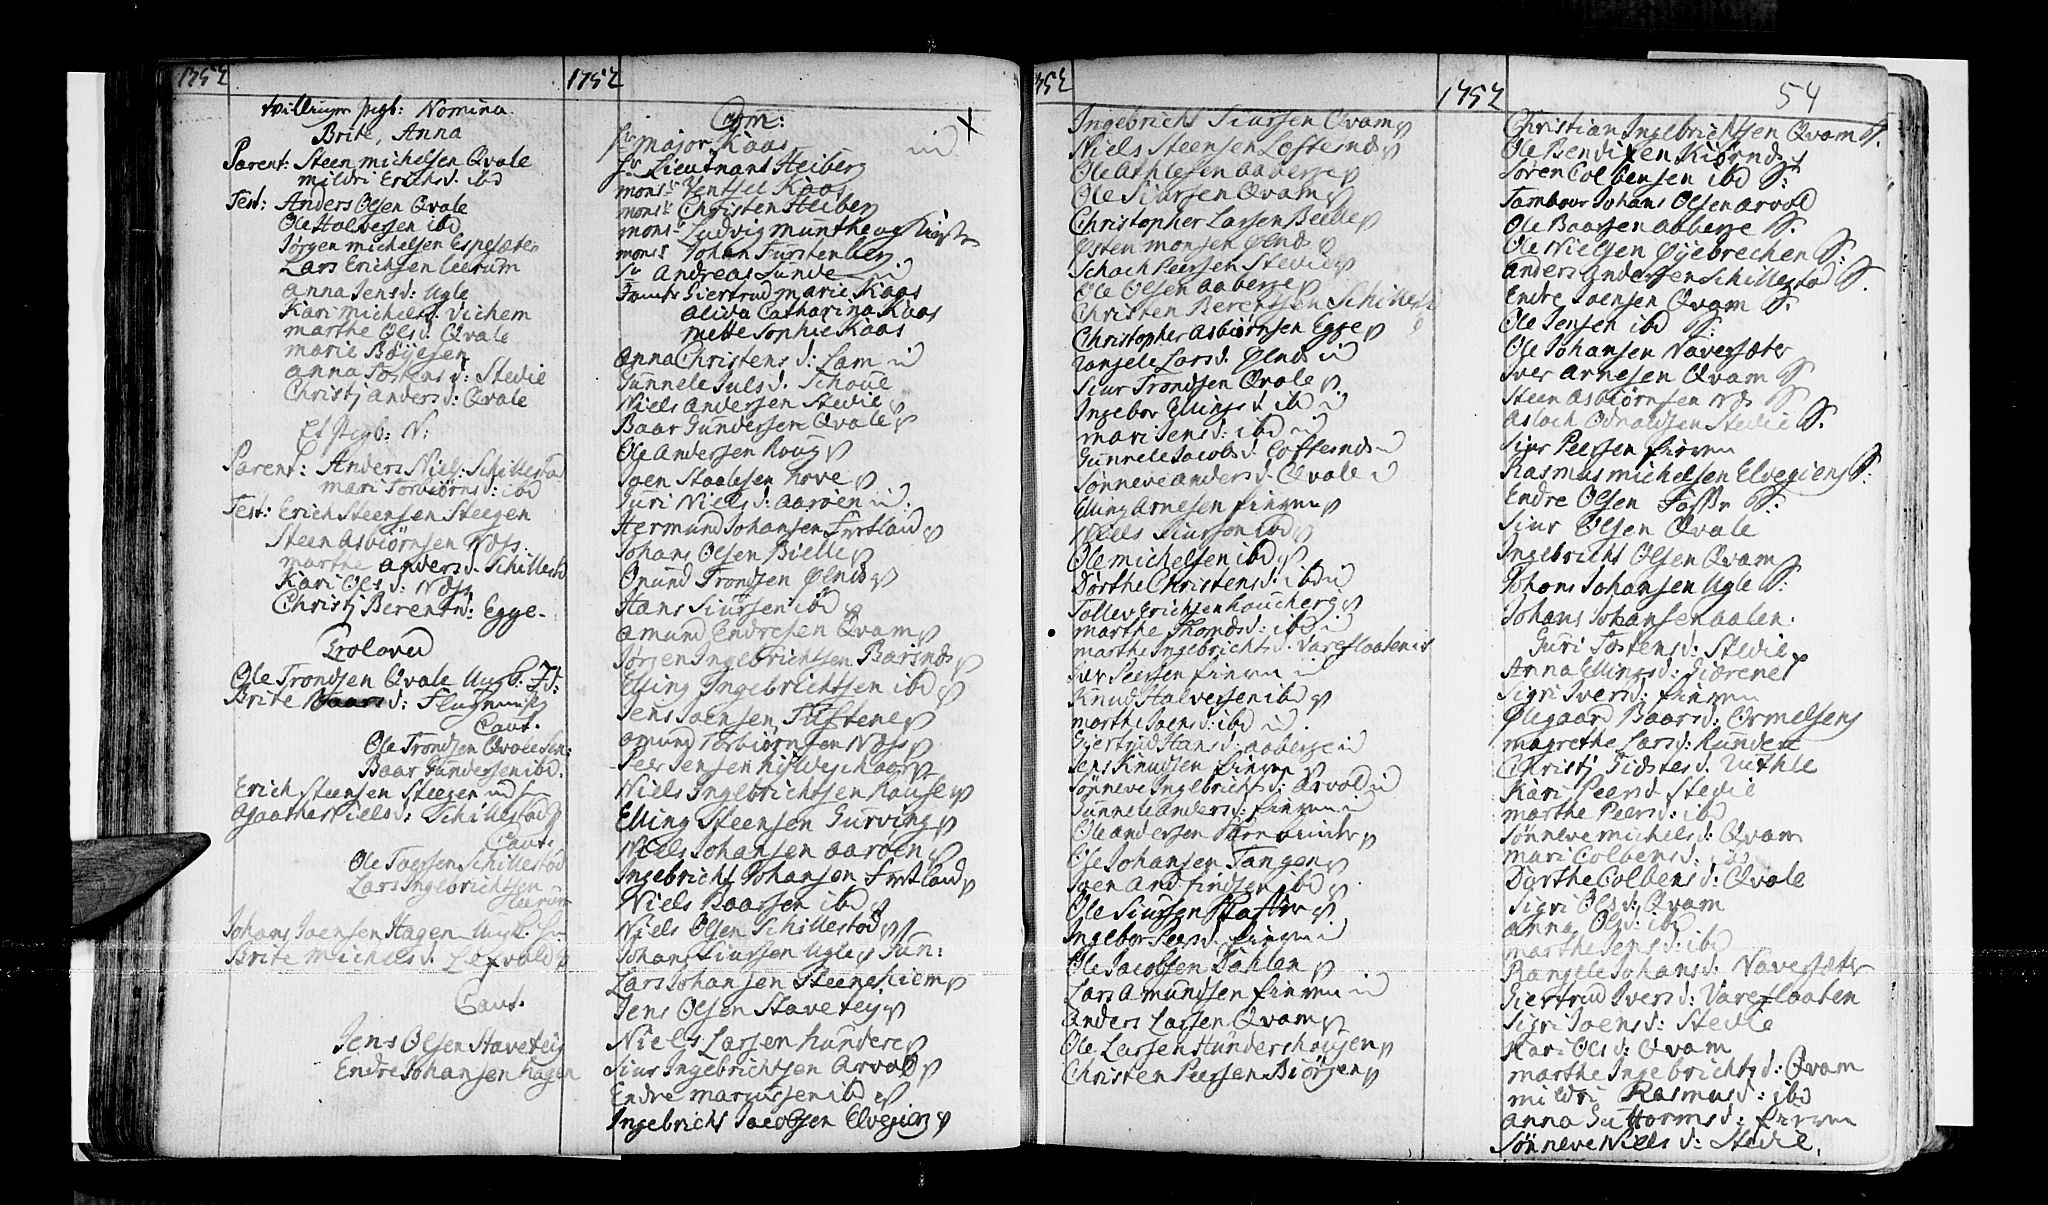 1752
tvillinger pigb: Nomina
Brite, Anna
Parent: Steen michelsen Qvale
mildri Erichsd. ibd
Test: Anders Olsen Qvale
Ole Halversen ibd
Jørgen michelsen Espesæter
Lars Erichsen Leerum
Anna Jensd: Ugle
Kari michelsd. Vichem
marthe Olsd. Qvale
marie Bøyesen
anna Tostensd: Stedie
Christj Andersd: Qvale
Et pigb: N:
Parent: Anders Niels: Schillestad
mari Torbiørnsd: ibd
Test: Erich Steensen Steegen
Steen Asbiørnsen Næss
marthe andersd. Schillestd
Kari Olsd: Næss
Christj Berentsd: Egge.
Troloved
Ole Trondsen Qvale Ungk.
Brite Baarsd:
Caut.
Ole Trondsen Qvale Sen:
Baar Gundersen ibd.
Erich Steensen Steegen
Agaathe Nielsd: Schillestad
Caut.
Ole Joensen Schillestad
Lars Ingebrichtsen
Leerum
Johans Joensen Hagen Ungk.
Brite Michelsd. Lofvald
Caut.
Jens Olsen Staveteig
Endre Johansen Hagen
1752
Com: X
Hr major Kaas
Hr Lieutnant Heiberg
monsr Ventsel Kaas
monsr Christen Heiberg
monsr Ludvig munthe og
monsr Johan Fürstenberg
Sr Andreas Sunde
Giertrud marie Kaas
Alida Catharina Kaas
Mette Sophie Kaas
Anna Christensd: Lam
Gunnele Julsd. Schoue
Niels Andersen Stedie
Baar Gundersen Qvale
Ole Andersen Roug
Joen Staalesen Hove
Guri Nielsd: Aarøen
Hermund Johansen Fretland
Johans Olsen Bielle
Onund Trondsen Ølnes
Hans Siursen ibd
Amund Endresen Qvam
Jørgen Ingebrichtsen Barsnes
Elling Ingebrichtsen ibd
Jens Joensen Tuftene
Amund Torbiørnsen Næss
Peer Jensen
Niels Ingebrichtsen
Elling Steensen Gurvin
Niels Johansen Aarøen
Ingebricht Johansen Fretland
Niels Baarsen ibd
Niels Olsen Schillestad
Johans Siursen Ugle Jun:
Lars Johansen Steenehiem
Jens Olsen Staveteig
Niels Larsen Hundere
Siur Ingebrichtsen Arvold
Endre mariussen ibd
Ingebricht Jacobsen Elvegien
1752
Ingebricht Siursen Qvam
Niels Steensen Loftesnes
Ole Athlesen Aaberge
Ole Siursen Qvam
Christopher Larsen Bielle
Østen monsen Ølnes
Schach Peersen Stedie
Ole Olsen Aaberge
Christen Berentsen Schillest:
Christopher Asbiørnsen Egge
Rangele Larsd. Ølnes
Siur Trondsen Qvale
Ingebor Ellingsd. ibd
mari Jensd: ibd
Gunnele Jacobsd. Loftesnes
Sønneve Andersd. Qvale
Elling Arnesen fimrm
Niels Siursen ibd
Ole michelsen ibd
Dorthe Christensd: ibd
Tollev Erichsen Houcberg
marthe Thomasd: ibd
marthe Ingebrichtsd. Vareflaaten
Iver Peersen
Knud Halversen ibd
marthe Joensd: ibd
Giertrud Hansd: Aaberge
Jens Knudsen
Sønneve Ingebrichtsd: Arvold
Gunnele Andersd:
Ole Andersen
Ole Johansen Tangen
Joen Andfindsen ibd
Ole Siursen
Ingebor Peersd.
Ole Jacobsen Dahlen
Lars Amundsen
Anders Larsen Qvam
Ole Larsen Hundershougen
Christen Peersen Biørgen
1752
54
Christian Ingebrichtsen Qvam S.
Ole Bendixen Kiørnes
Søren Colbensen ibd S.
Tambour Johans Olsen Arvold
Ole Baarsen Aaberge S.
Ole Nielsen Øyebrechen S:
Anders Andersen Schillestad S.
Endre Joensen Qvam S.
Ole Jensen ibd S:
Ole Johansen Navesæter
Iver Arnesen Qvam S
Steen Asbiørnsen Næs S
Aslach Odnaldsen Stedie S.
Siur Peersen
Rasmus michelsen Elvegien S.
Endre Olsen Foss S.
Siur Olsen Qvale
Ingebricht Olsen Qvam
Johans Johansen Ugle S.
Johans Johansen Aalen.
Guri Tostensd: Stedie
Anna Ellingsd:
Sigri Iversd:
Ølegaard Baarsd: Ormelsen
magrethe Larsd: Hundere
Christj
Kari Peersd. Stedie
marthe Peersd: ibd
Sønneve michelsd: Qvam
mari Colbensd: ibd
Dorthe Colbensd: Qvale
Sigri Olsd: Qvam
Anna Olsd: ibd
marthe Jensd: ibd
Rangele Johansd: Navesæter
Giertrud Iversd: Vareflaaten
Sigri Joensd: Stedie
Kari Olsd: Qvam
marthe Ingebrichtsd: Qvam
mildri Rasmusd: ibd
Anna Guttormsd:
Sønneve Nielsd: Stedie.